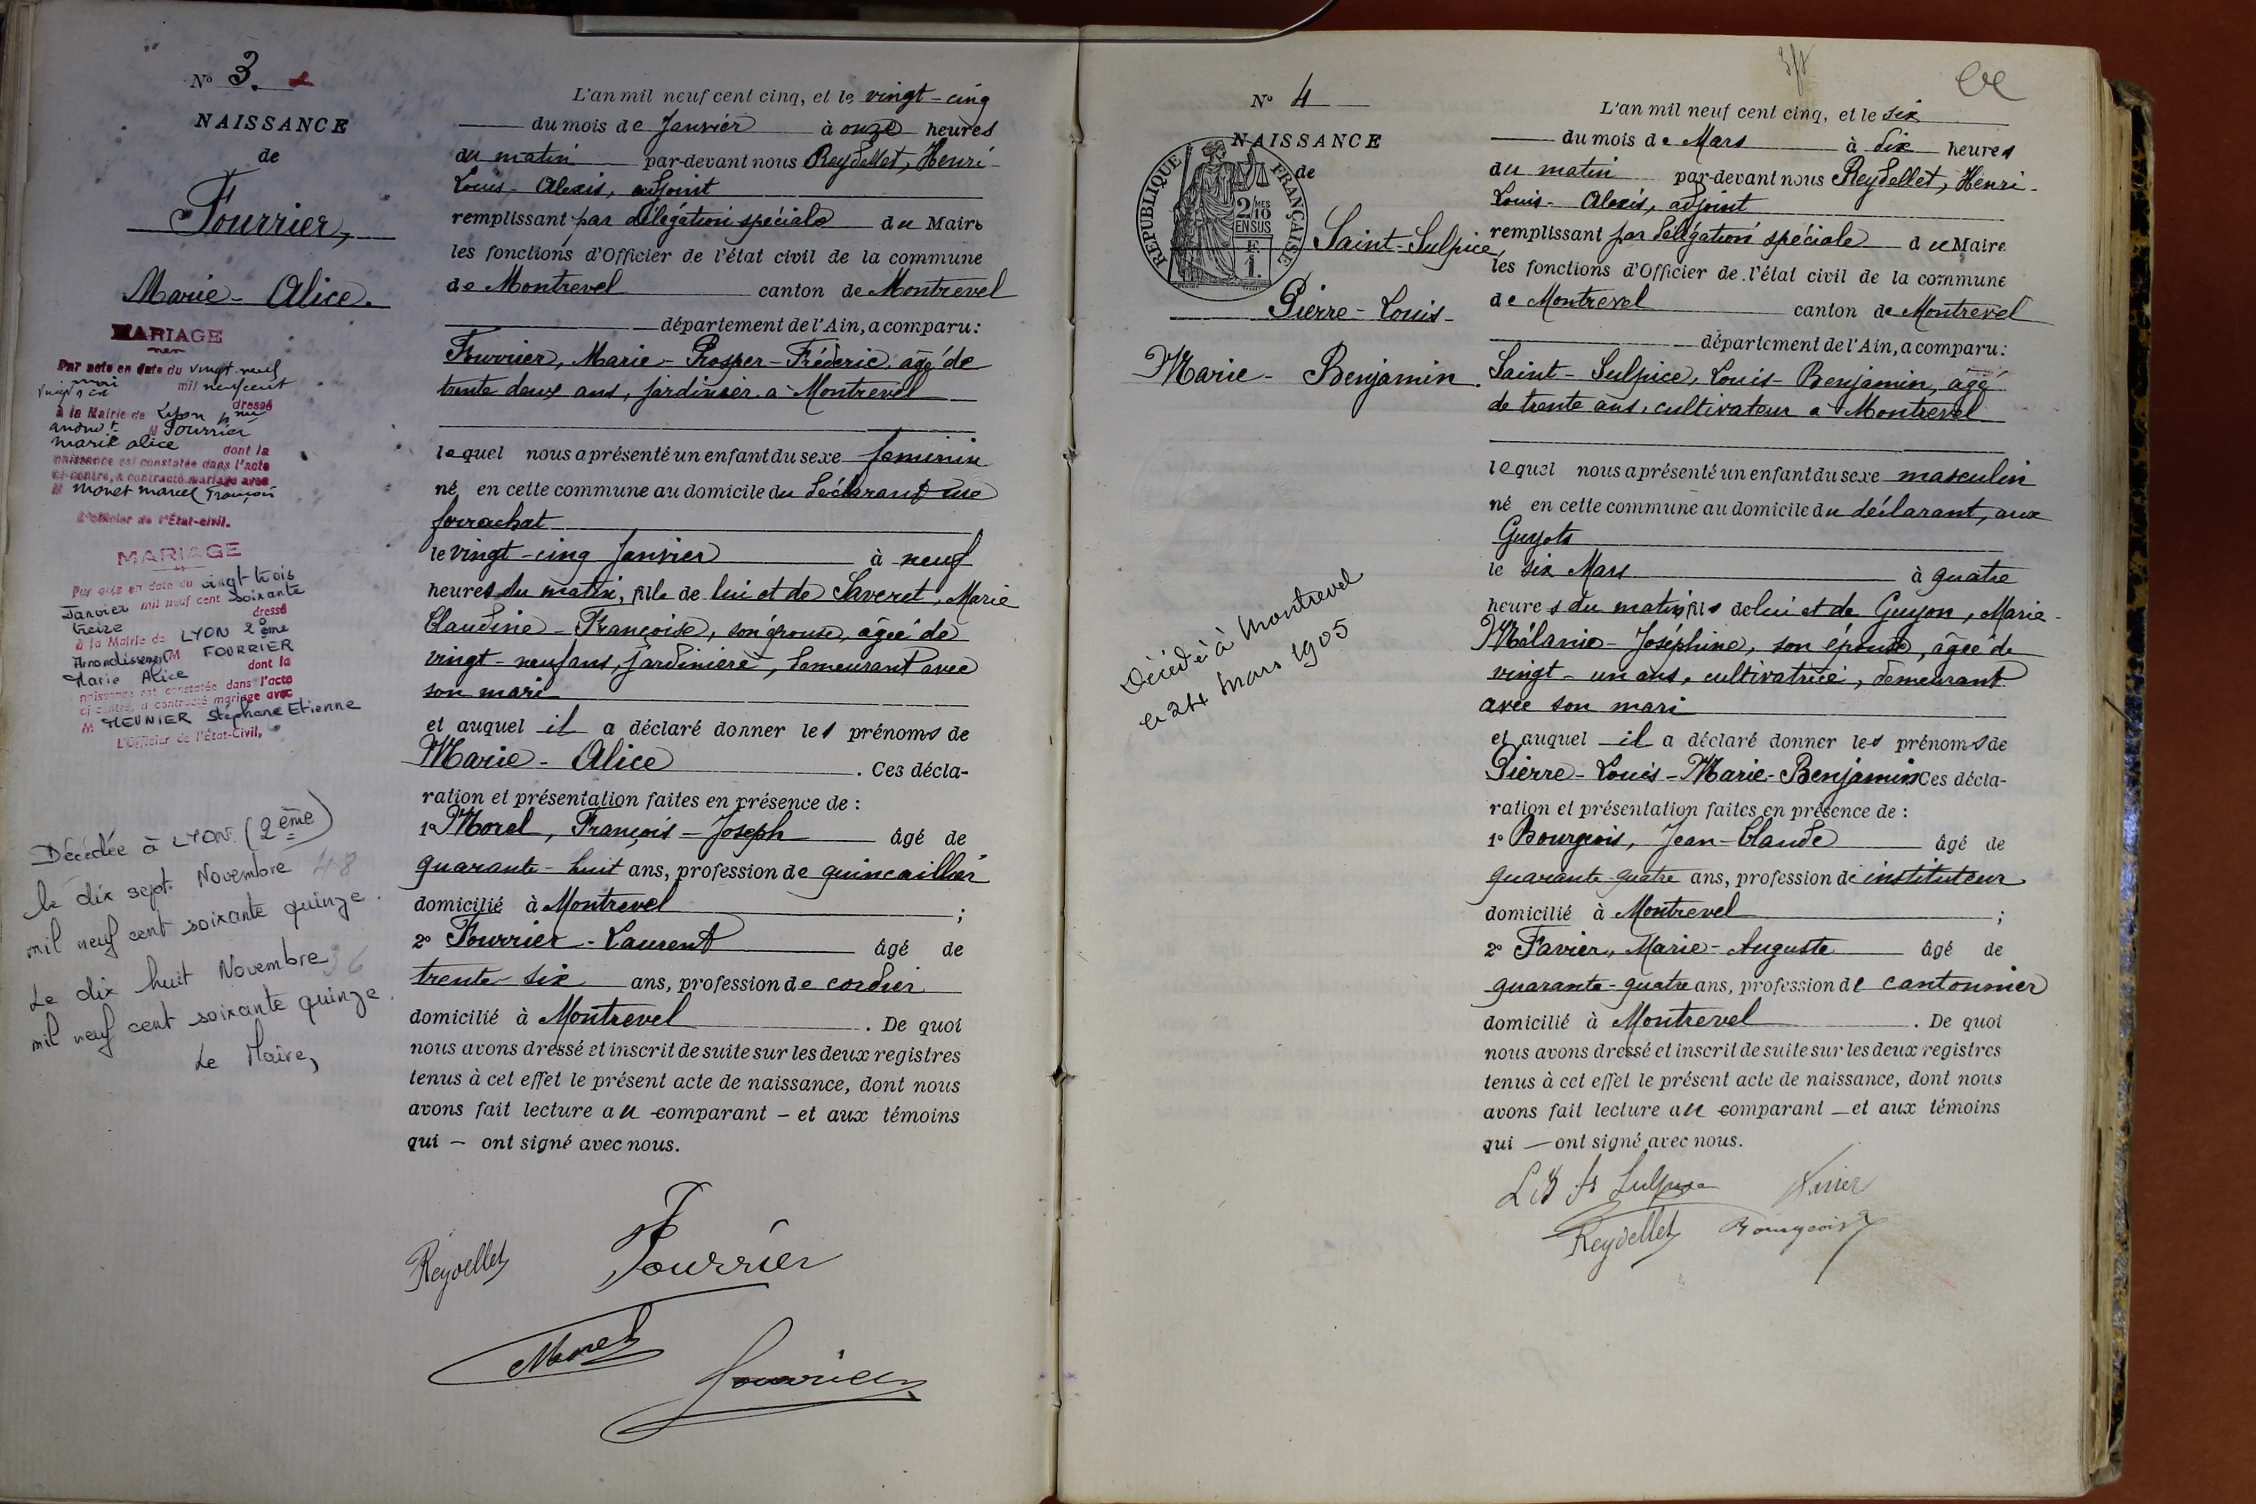 N° 3.
NAISSANCE
de
Fourrier,
Marie - Alice.
MARIAGE
Par acte en date du vingt neuf
mai mil neuf cent
vingt six
dressé
à la Mairie de Lyon
arrondt M Fourrier
marie alice
dont la
naissance est constatée dans l'acte
ci-contre, a contracté mariage avec
M Monet marcel François
L'officier de l'État-civil.
MARIAGE
Par acte en date du vingt-trois
Janvier mil neuf cent soixante
treize dressé
à la Mairie de LYON 2ème
Arrondissement M FOURRIER
Marie Alice dont la
naissance est constatée dans l'acte
ci-contre, a contracté mariage avec
M MEUNIER Stéphane Etienne
L'Officier de l'État-Civil,
Décédée à LYON (2ème)
le dix sept Novembre 48
mil neuf cent soixante quinze.
Le dix huit Novembre 36
mil neuf cent soixante quinze.
Le Maire,
L'an mil neuf cent cinq, et le vingt-cinq
du mois de Janvier à onze heures
du matin par-devant nous Reydellet, Henri-
Louis-Alexis, adjoint
remplissant par délégation spéciale du Maire
les fonctions d'Officier de l'état civil de la commune
de Montrevel canton de Montrevel
département de l'Ain, a comparu:
Fourrier, Marie-Prosper-Fréderic, âgé de
trente deux ans, jardinier à Montrevel
lequel nous a présenté un enfant du sexe feminin
né en cette commune au domicile du déclarant rue
ferrachat
le vingt-cinq Janvier à neuf
heures du matin, fille de lui et de Saveret, Marie
Claudine-Françoise, son épouse, âgée de
vingt-neuf ans, jardinière, demeurant avec
son mari
et auquel il a déclaré donner les prénoms de
Marie-Alice. Ces décla-
ration et présentation faites en présence de:
1° Morel, François-Joseph âgé de
quarante-huit ans, profession de quincaillier
domicilié à Montrevel;
2° Fourrier-Laurent âgé de
trente six ans, profession de cordier
domicilié à Montrevel. De quoi
nous avons dressé et inscrit de suite sur les deux registres
tenus à cet effet le présent acte de naissance, dont nous
avons fait lecture au comparant - et aux témoins
qui - ont signé avec nous.
Reydellet Fourrier
Morel
Fourrier
3/8
N° 4
NAISSANCE
de
REPUBLIQUE FRANÇAISE
2/10 MES
EN SUS
F.
1.
Saint-Sulpice,
Pierre-Louis-
Marie-Benjamin.
Décédé à Montrevel
le 24 Mars 1905
L'an mil neuf cent cinq, et le six
du mois de Mars à dix heures
du matin par-devant nous Reydellet, Henri-
Louis-Alexis, adjoint
remplissant par délégation spéciale du Maire
les fonctions d'Officier de l'état civil de la commune
de Montrevel canton de Montrevel
département de l'Ain, a comparu:
Saint-Sulpice, Louis-Benjamin, âgé
de trente ans, cultivateur à Montrevel
lequel nous a présenté un enfant du sexe masculin
né en cette commune au domicile du déclarant, aux
Guyots
le six Mars à quatre
heures du matin, fils de lui et de Guyon, Marie-
Mélanie-Joséphine, son épouse, âgée de
vingt-un ans, cultivatrice, demeurant
avec son mari
et auquel il a déclaré donner les prénoms de
Pierre-Louis-Marie-Benjamin Ces décla-
ration et présentation faites en présence de:
1° Bourgeois, Jean-Claude âgé de
quarante-quatre ans, profession de instituteur
domicilié à Montrevel;
2° Favier, Marie-Auguste âgé de
quarante-quatre ans, profession de cantonnier
domicilié à Montrevel. De quoi
nous avons dressé et inscrit de suite sur les deux registres
tenus à cet effet le présent acte de naissance, dont nous
avons fait lecture au comparant - et aux témoins
qui - ont signé avec nous.
L B St Sulpice Favier
Reydellet Bourgeois